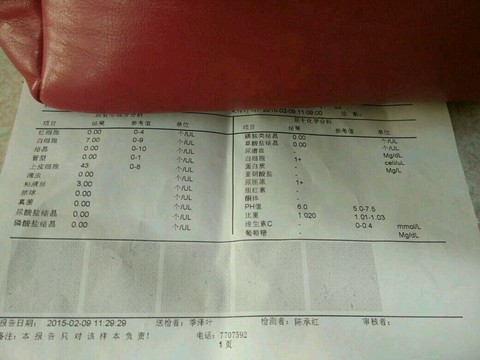 2015-02-09 11:09:00
项目 结果 参考值 单位
红细胞 0.00 0-4 个/UL
白细胞 7.00 0-9 个/UL
结晶 0.00 0-10 个/UL
管型 0.00 0-1 个/UL
上皮细胞 43 0-8 个/UL
滴虫 0.00 个/UL
粘液丝 3.00 个/UL
脓球 0.00 个/UL
真菌 0.00 个/UL
尿酸盐结晶 0.00 个/UL
磷酸盐结晶 0.00 个/UL
尿干化学分析
项目 结果 参考值 单位
磺胺类结晶 0.00 个/UL
草酸盐结晶 0.00 个/UL
尿潜血 - Mg/dL
白细胞 1+ cell/uL
蛋白质 - Mg/L
亚硝酸盐 -
尿胆原 1+
胆红素 -
酮体 -
PH值 6.0 5.0-7.5
比重 1.020 1.01-1.03
维生素C - 0-0.4 mmol/L
葡萄糖 - Mg/dL
报告日期: 2015-02-09 11:29:29 送检者: 季泽叶 检测者: 陈承红 审核者:
备注:本报告只对该样本负责! 电话: 7707592
1页